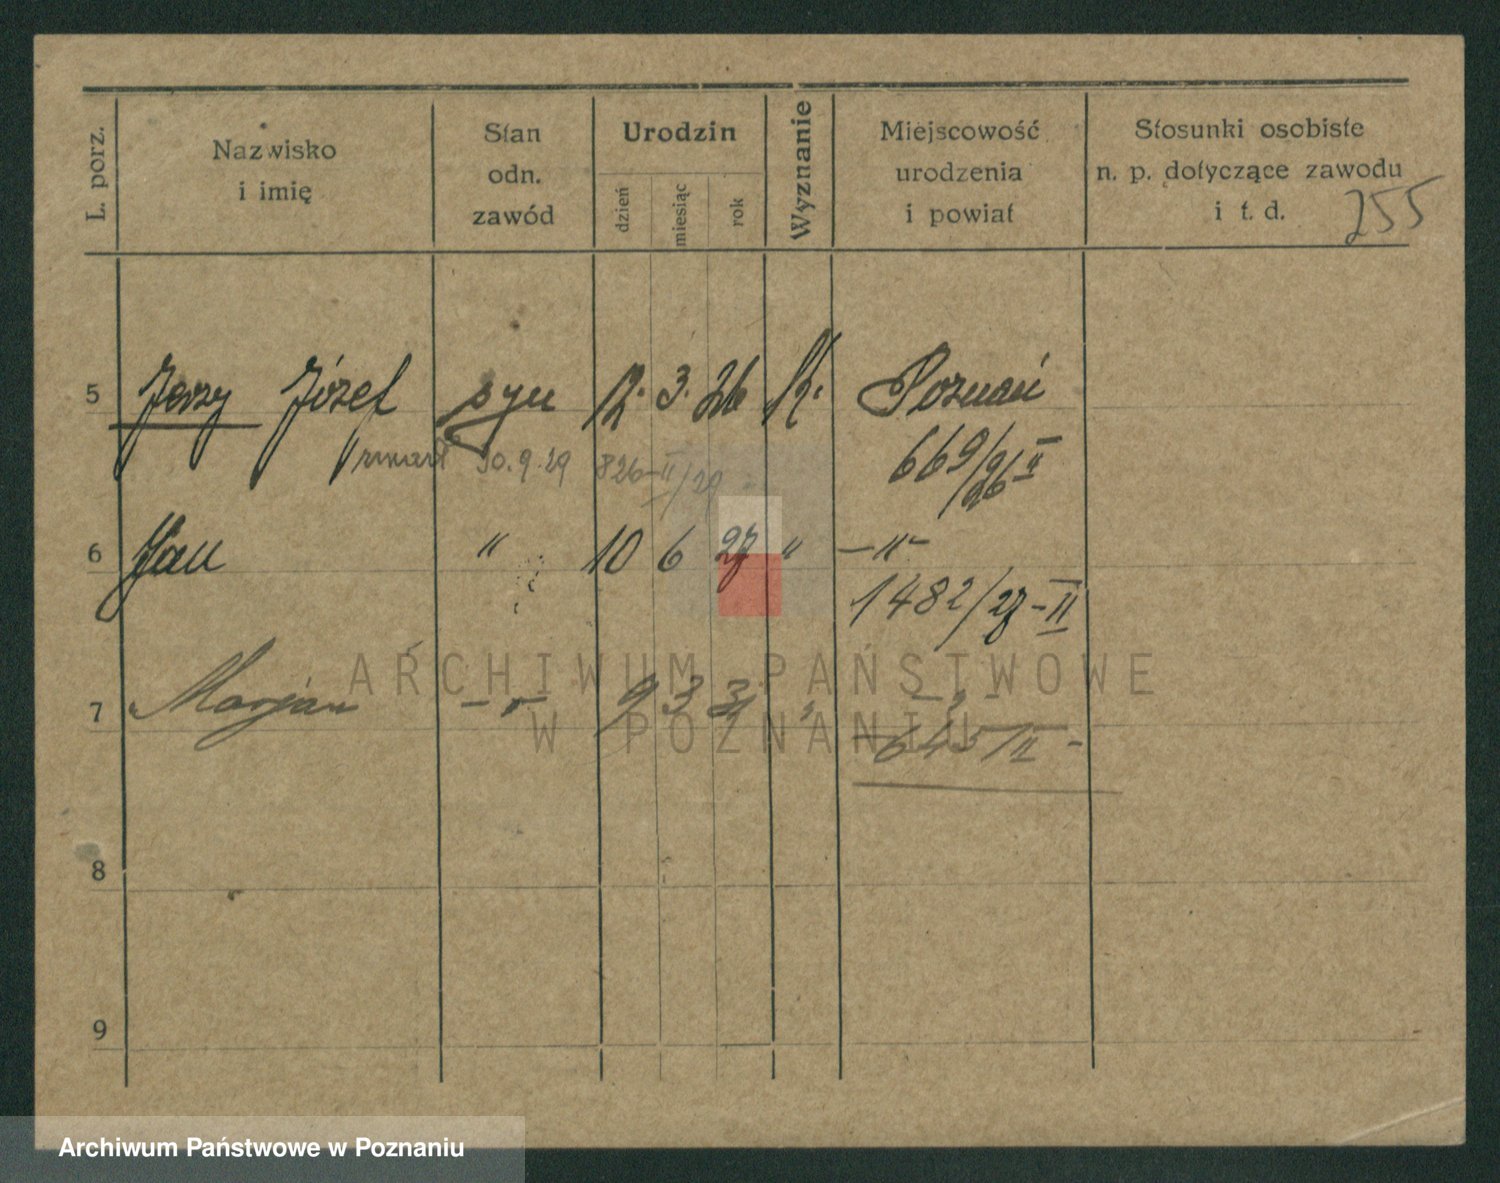 L. porz.
Nazwisko
i imię
Stan
odn.
zawód
Urodzin
dzień
miesiąc
rok
Wyznanie
Miejscowość
urodzenia
i powiat
Stosunki osobiste
n. p. dotyczące zawodu
i t. d.
255
5 Jerzy Józef syn 12. 3. 26 K. Poznań
zmarł 30.9.29 826-II/29
669/26 II
6 Jan " 10 6 27 " -"-
1482/27-II
7 Marjan -"- 9 3 31 " -"-
645/II-
8
9
ARCHIWUM PAŃSTWOWE
W POZNANIU
Archiwum Państwowe w Poznaniu